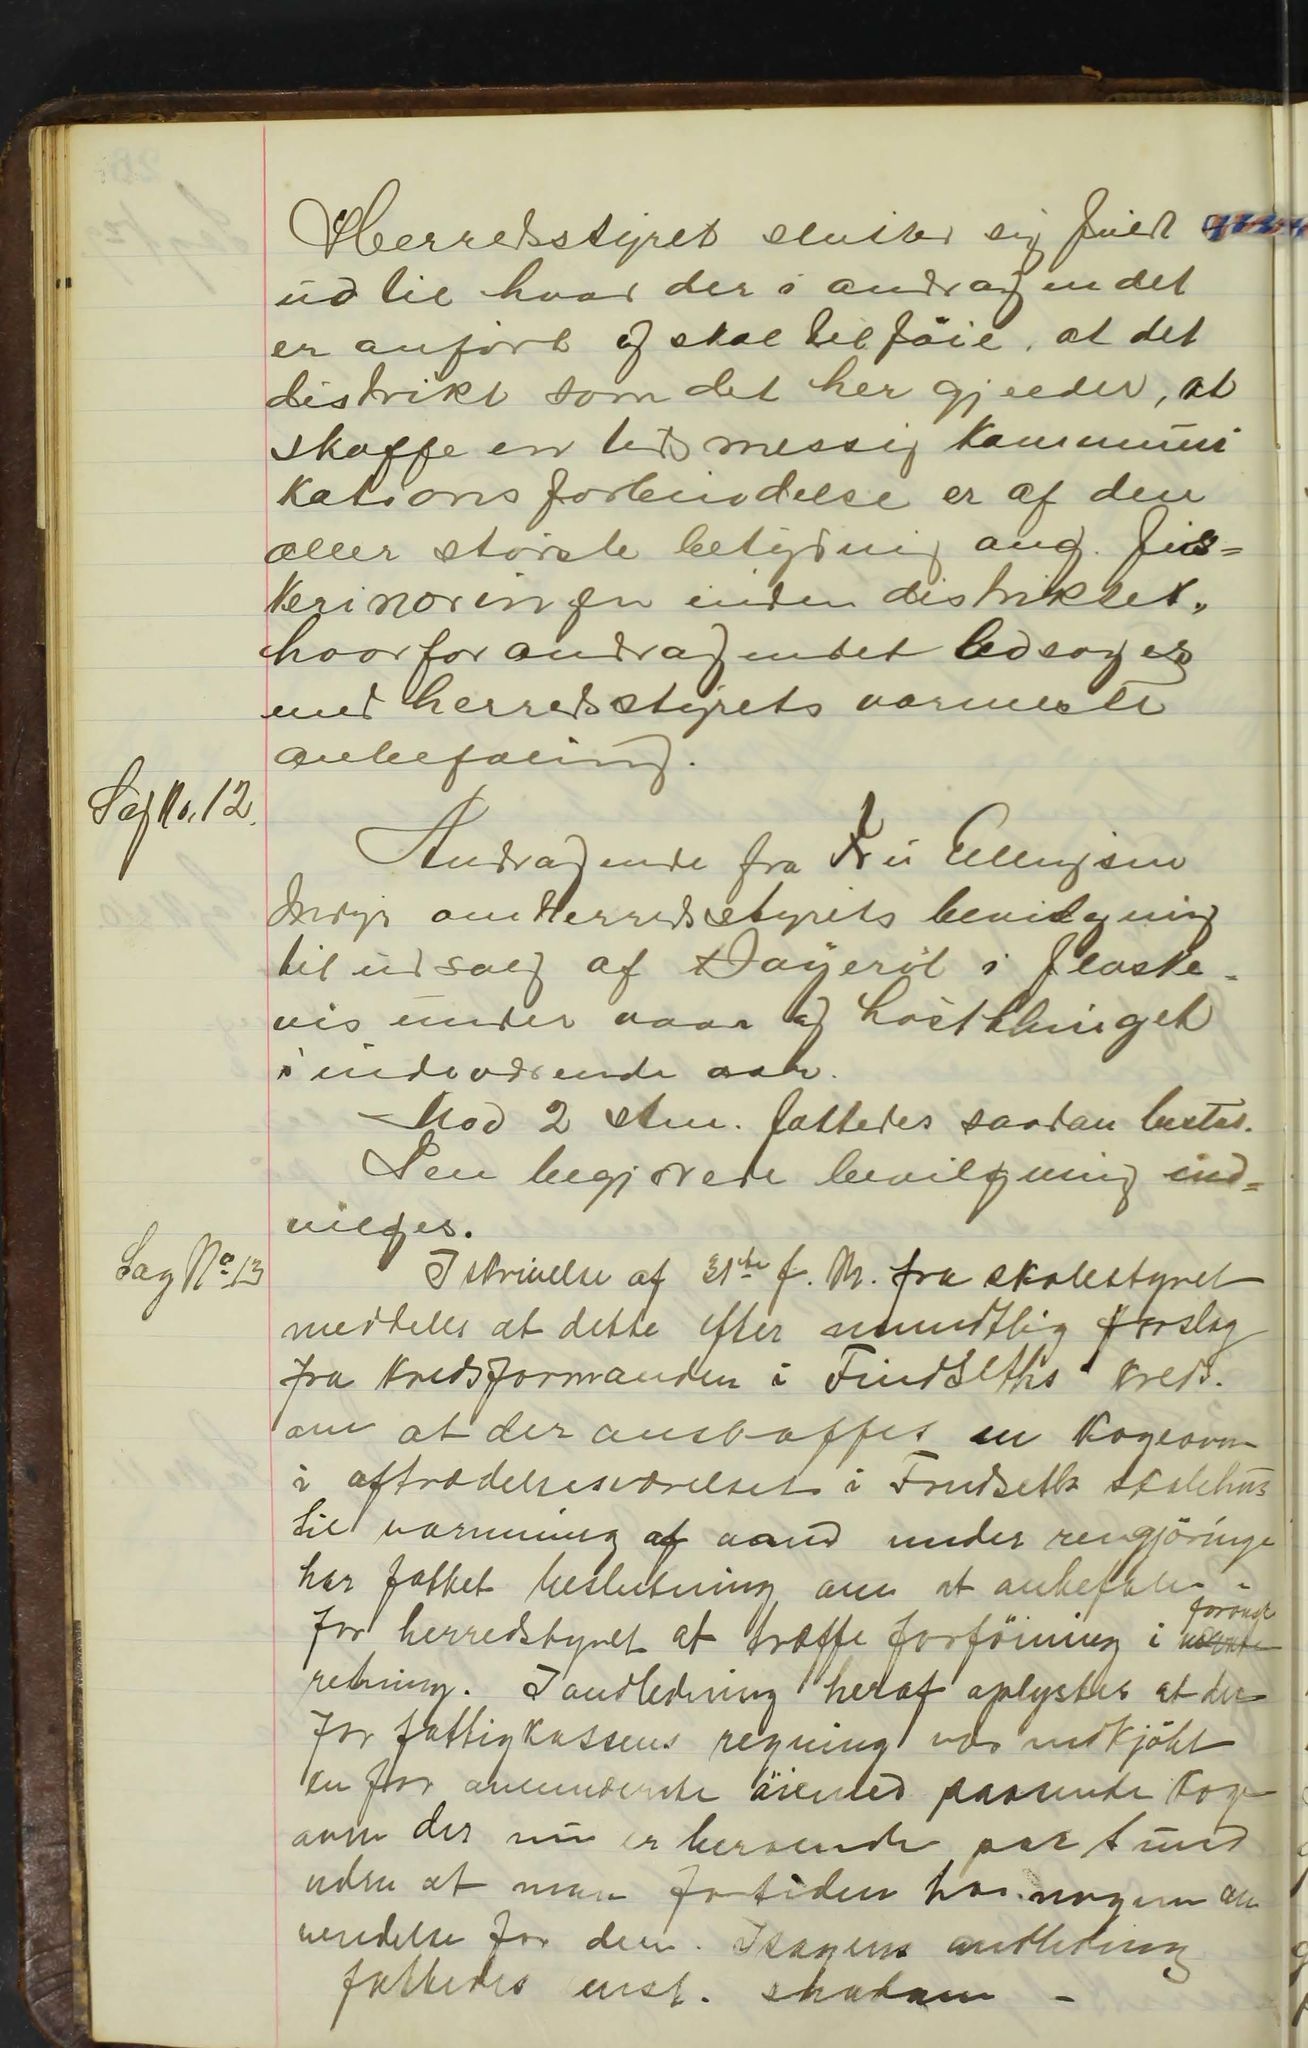 Herredsstyret slutter sig fuldt
ud til hvad der i andragendet
er anført og skal tilføie, at det
distrikt som det her gjelder, at
skaffe en tidsmessig kommuni
kationsforbindelse er af den
aller største betydning ang. fis=
kerinæringen inden distriktet,
hvorfor andragendet ledsages
med herredsstyrets varmeste
anbefaling.
Sag No. 12.
Andragende fra Fru Ellingsen
om Herredsstyrets bevilgning
til udsalg af Bayerøl i flaske-
vis under vaar og høstthinget
i indeværende aar.
Mod 2 stm. fattedes saadan beslut.
Den begjærede bevilgning ind=
vilges.
Sag No. 13
I skrivelse af 31te f. M. fra skolestyret
meddeles at dette efter mundtlig forslag
fra kredsformanden i Findseths kreds.
om at der anskaffes en kogeovn
i aftrædelsesværelset i Findseth skolehus
til varmning af vand under rengjøringe
har fattet beslutning om at anbefale
for herredstyret at træffe forføining i foranst
retning. I andledning heraf oplystes at der
for fattigkassens regning var indkjøbt
en for omtalte øiemed passende koge
ovn der nu er beroende paa Sund
uden at man for tiden har nogen an
vendelse for den. I sagens andledning
fattedes enst. saadan -